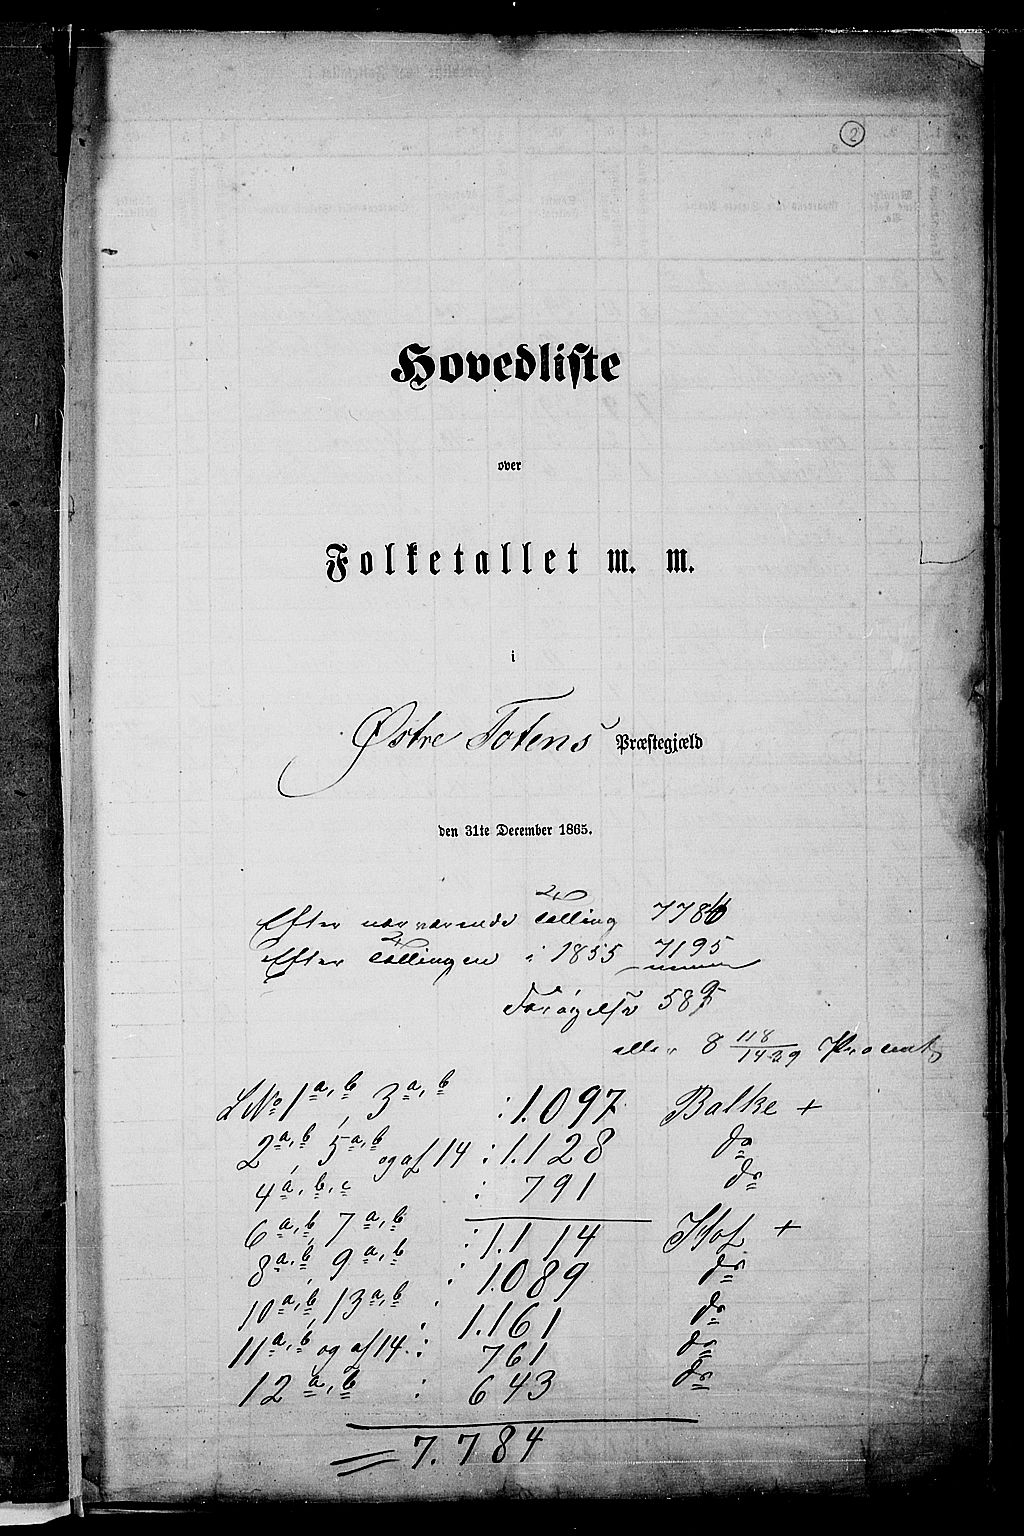 2
Hovedliste
over
Folketallet m. m.
i
Østre Totens Præstegjæld
den 31te December 1865.
Efter nærværende Tælling 7784
Efter Tællingen i 1855 7195
Forøgelse 589
eller 8 118/1439 Procent
LNo 1 a, b, 3 a, b : 1.097 Balke +
2 a, b, 5 a, b og af 14 : 1.128 do
4 a, b, c : 791 do
6 a, b, 7 a, b : 1.114 Hof +
8 a, b, 9 a, b : 1.089 do
10 a, b, 13 a, b : 1.161 do
11 a, b og af 14 : 761 do
12 a, b : 643 do
= 7.784